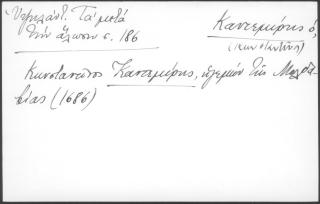 Υψηλάντ. Τα μετά
την άλωσιν σ. 186
Καντεμίρης ὁ,
(Κωνσταντῖνος)
Κωνσταντῖνος Καντεμίρης, ἡγεμών τῆς Μολδα-
βίας (1686)